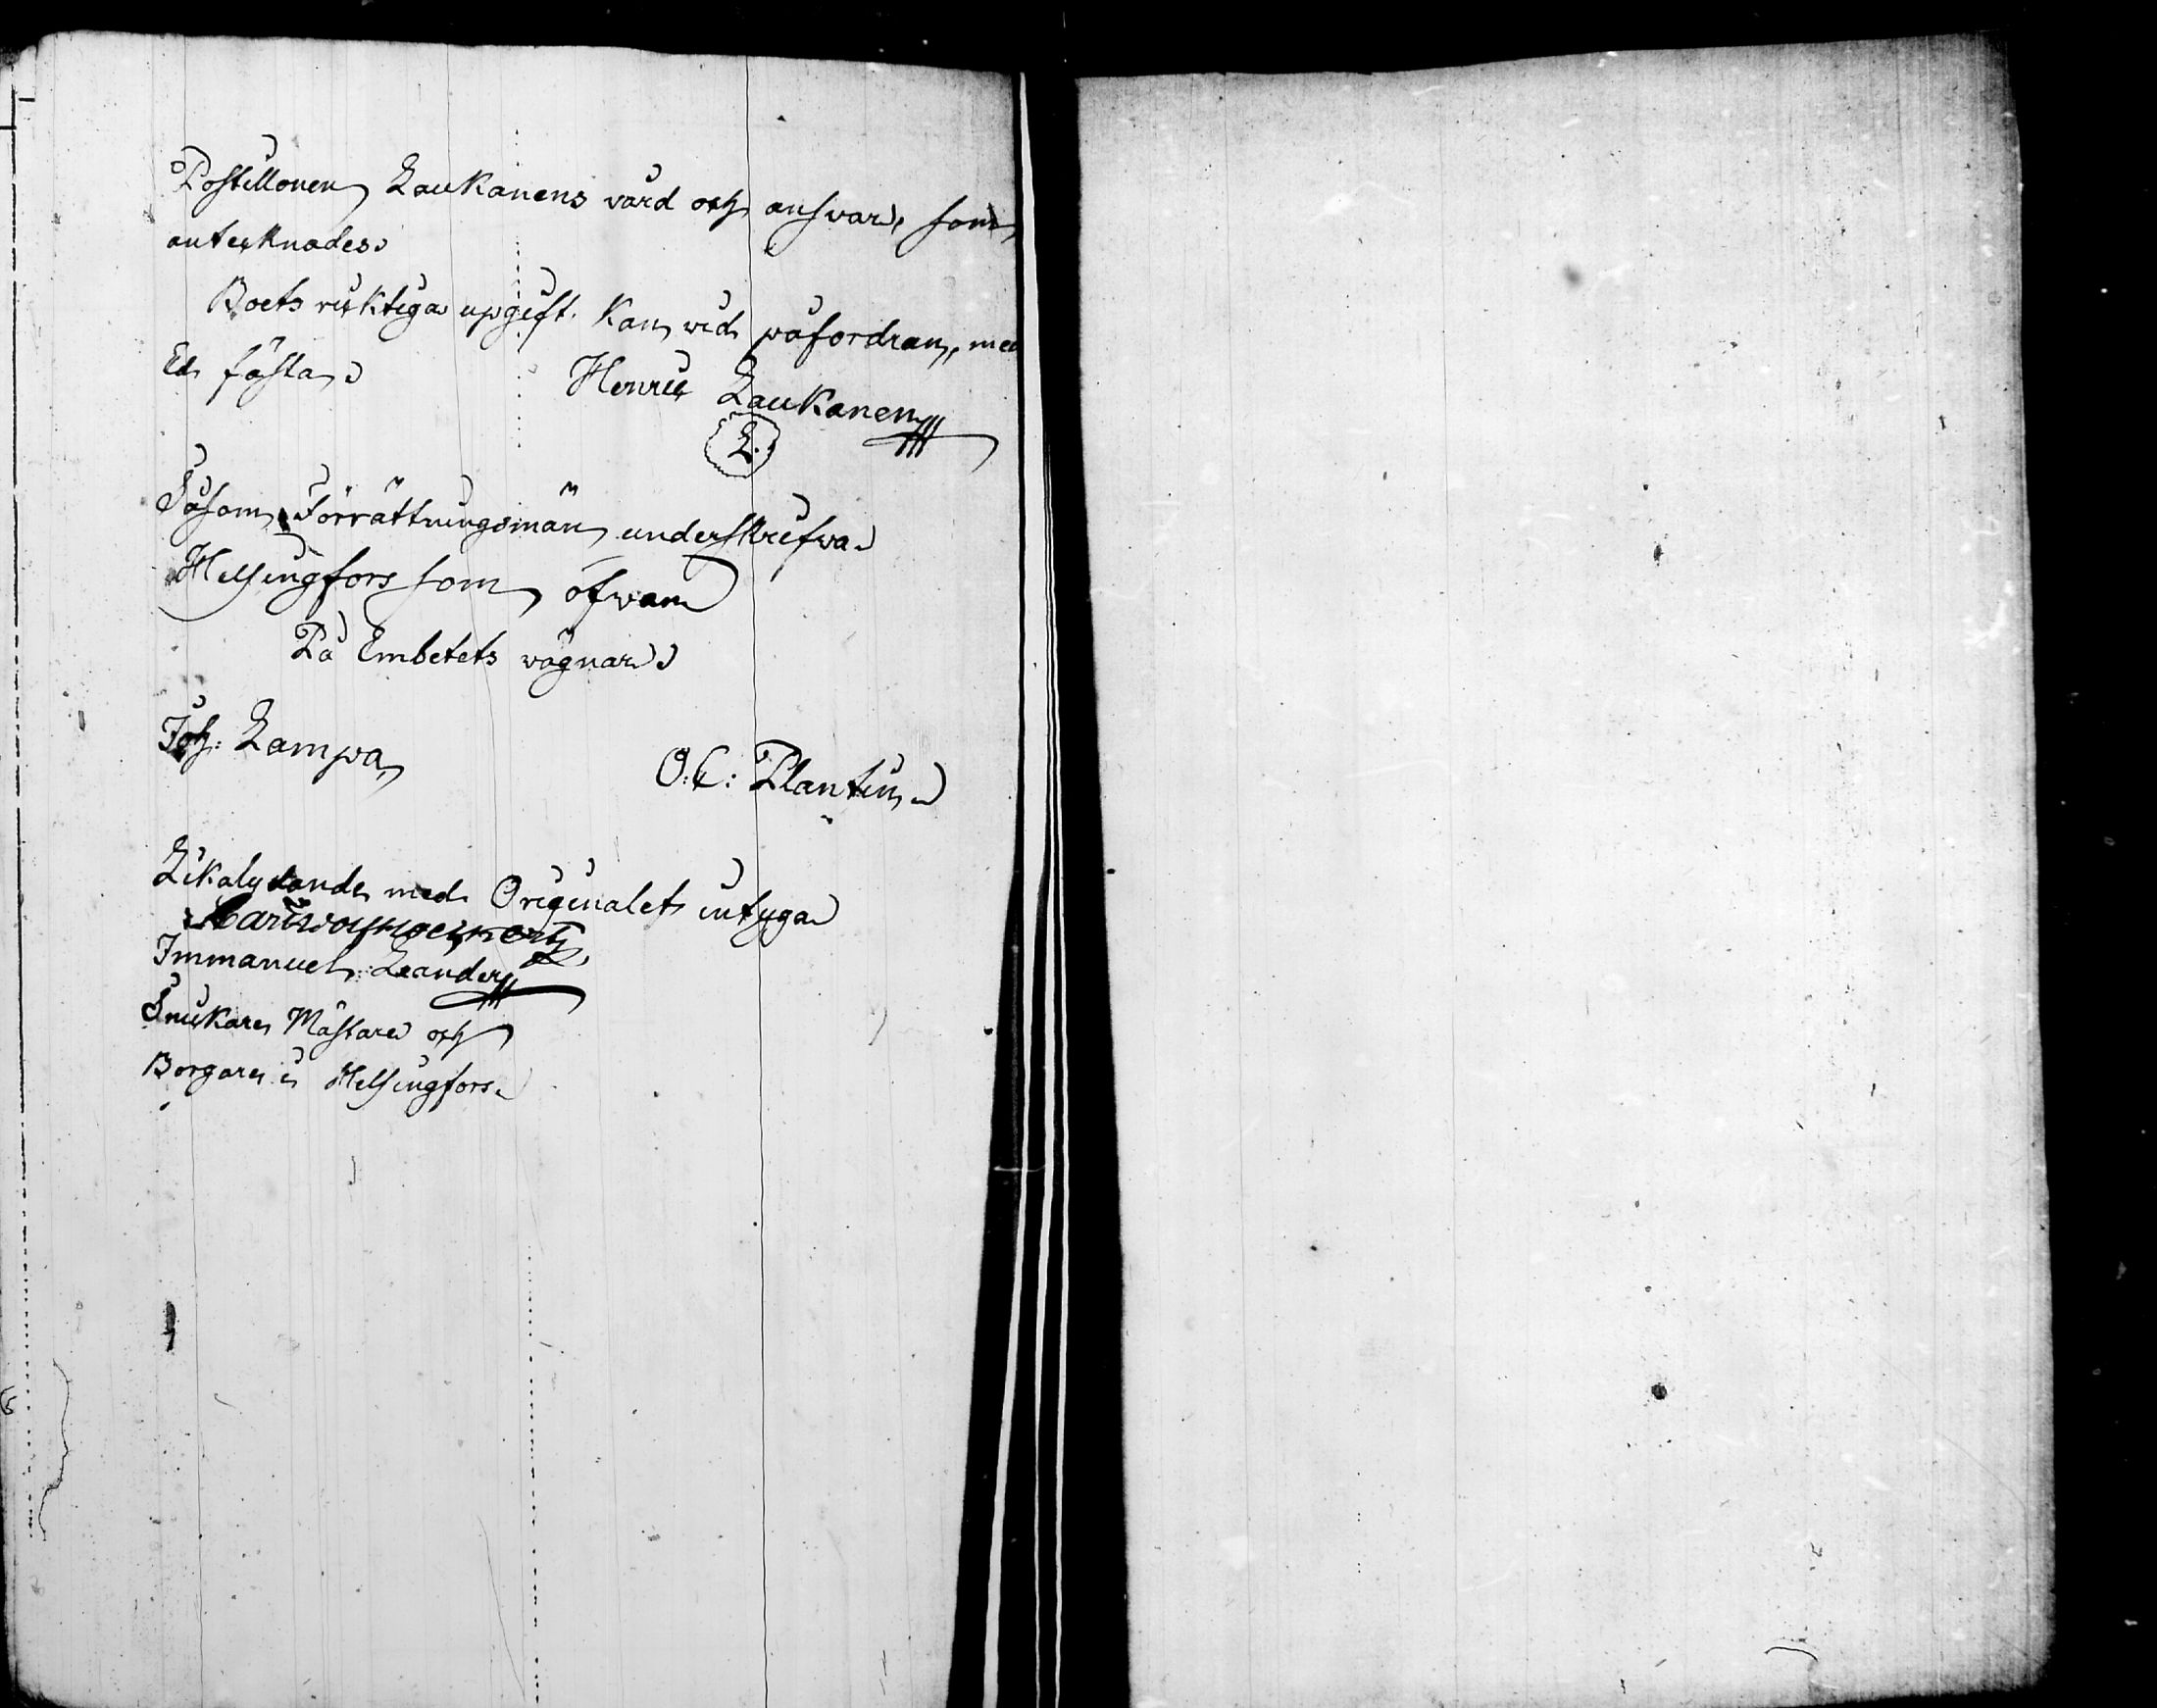 Postillonen Laukanens vård och answar, som
antecknades.
Boets ricktiga upgift kan wid påfordran, med
Ed fästas
Henric Laukanen
L.
Såsom Förrättningsmän underskrifwa
Helsingfors som ofwan
På Embetets wägnar
Joh: Lampa
O. C: Plantin
Likalydande med Originalet intyga
Immanuel Leander
Snickare Mästare och
Borgare i Helsingfors